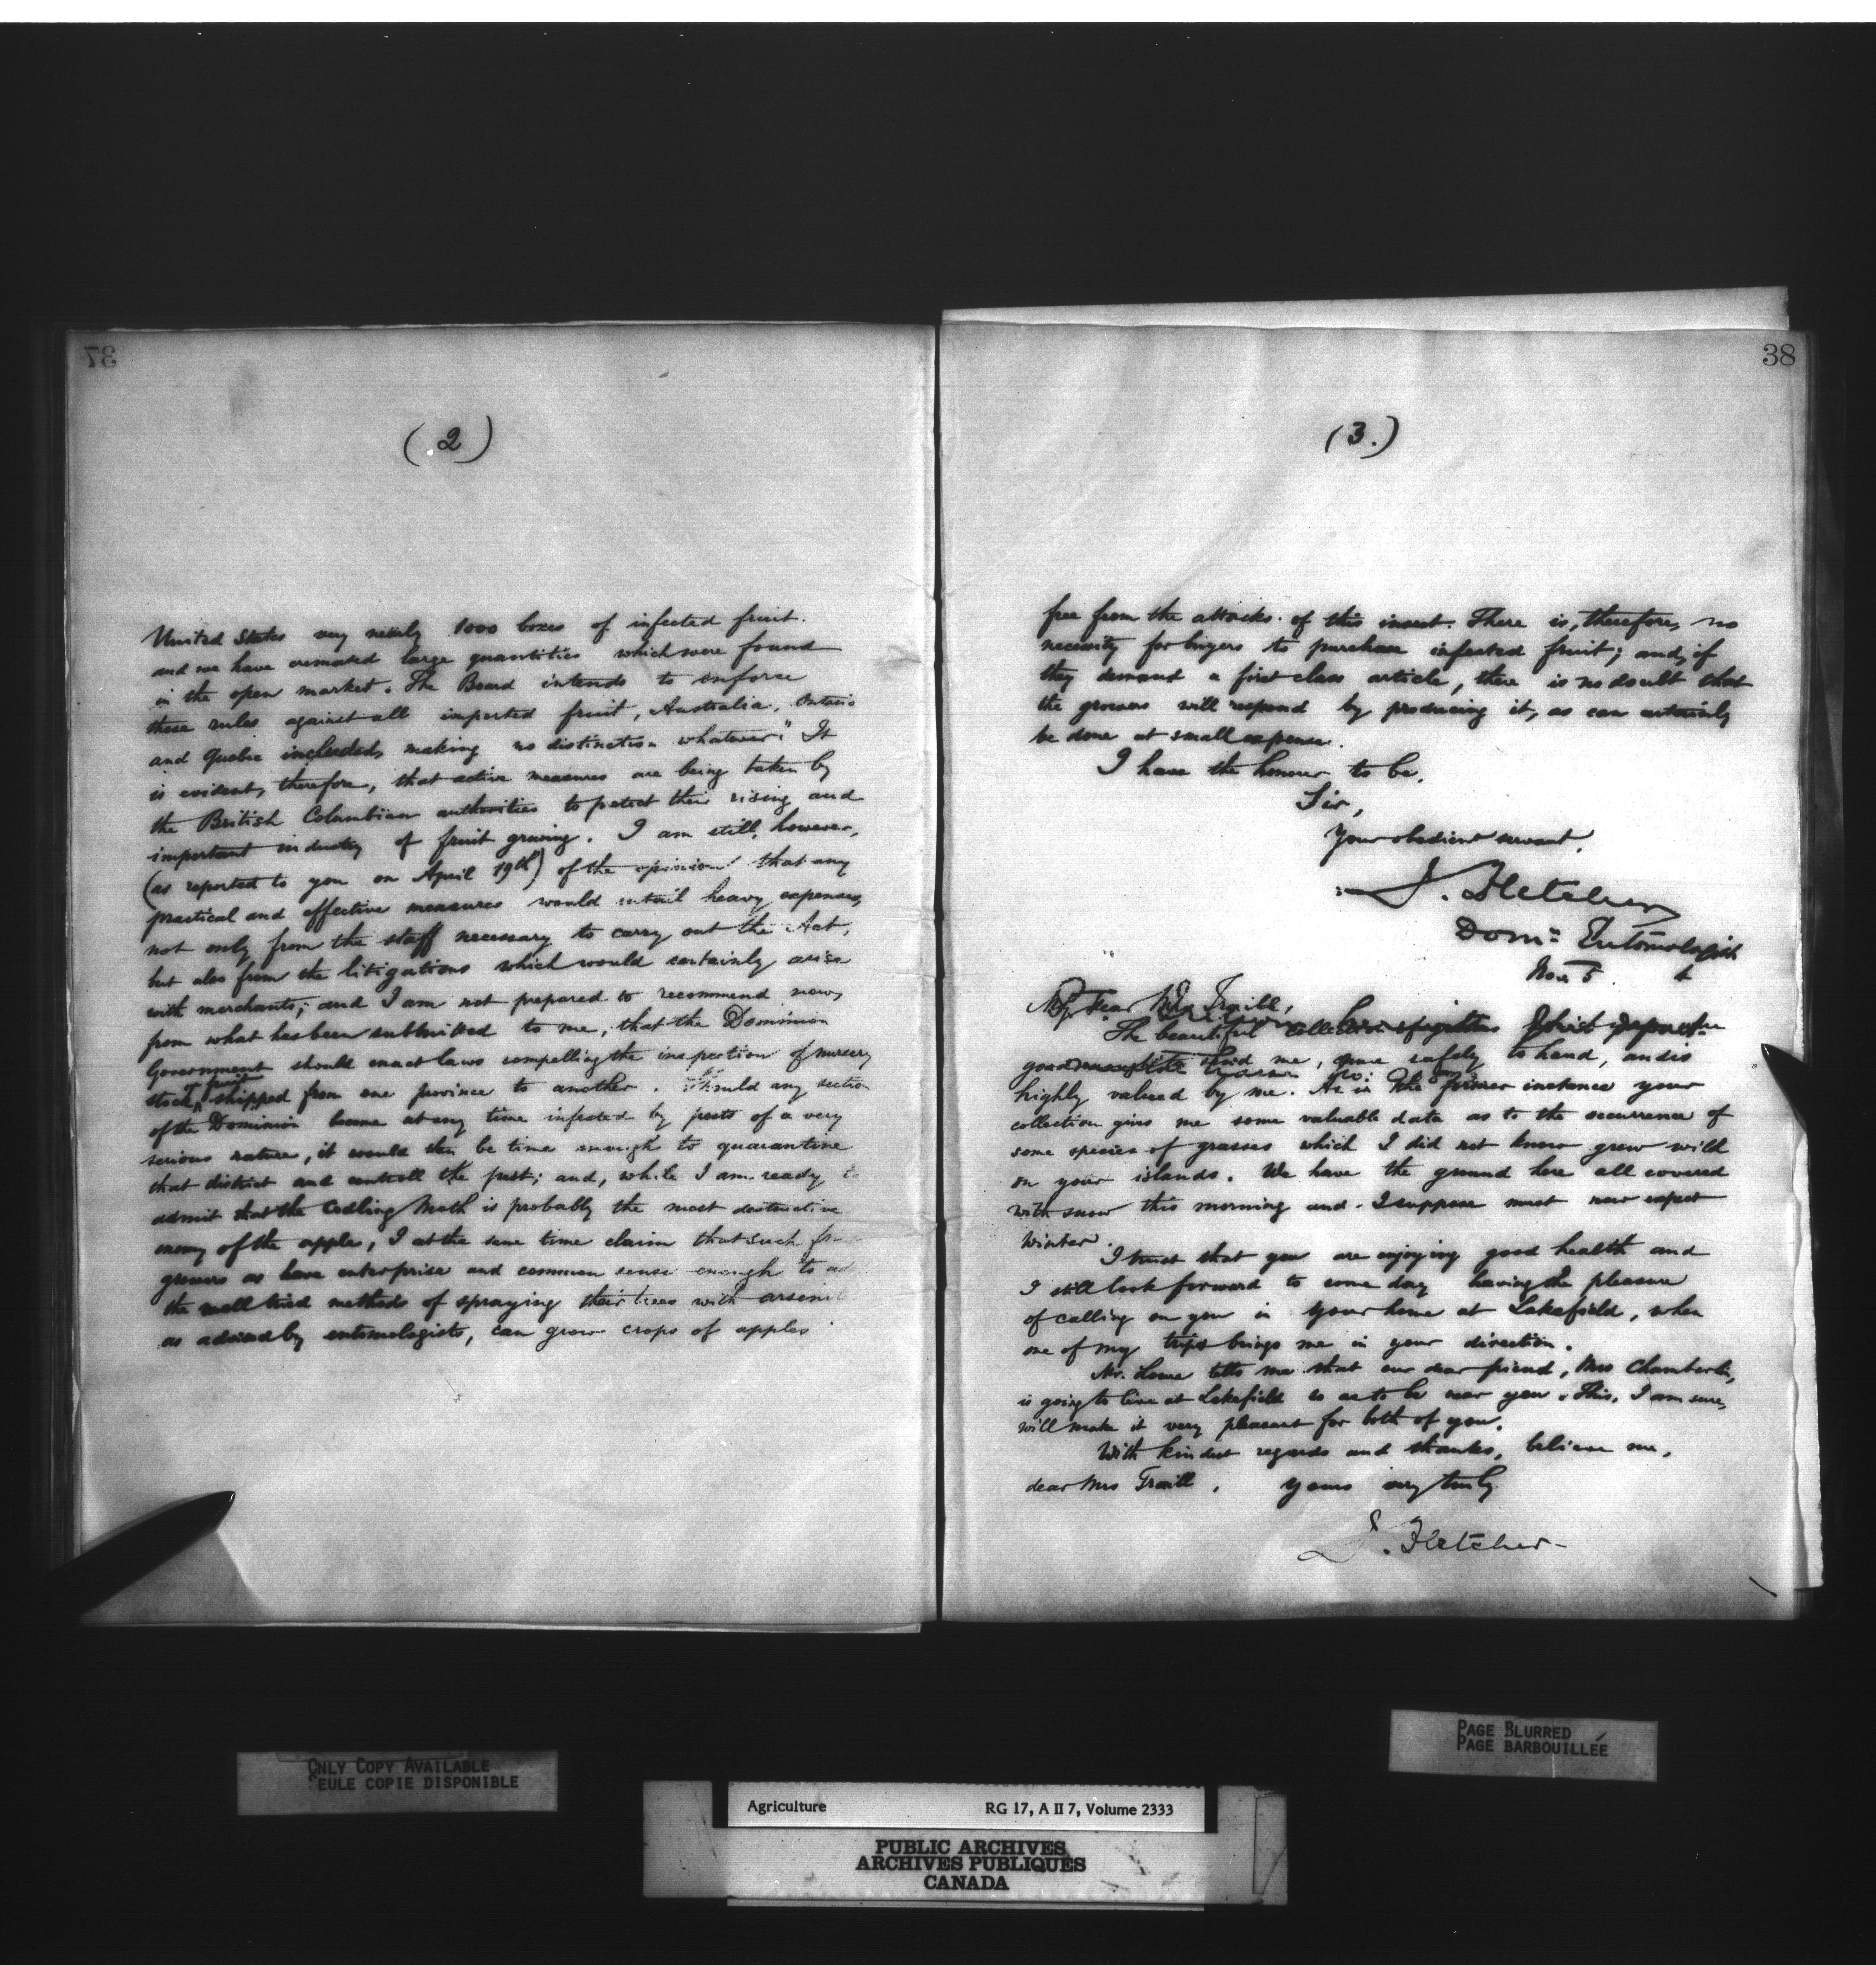 37
(2)
United States very nearly 1000 boxes of infected fruit.
and we have cremated large quantities which were found
in the open market. The Board intends to enforce
these rules against all imported fruit, Australia, Ontario
and Quebec included, making no distinction whatever." It
is evident, therefore, that active measures are being taken by
the British Columbian authorities to protect their rising and
important industry of fruit growing. I am still, however,
(as reported to you on April 19th) of the opinion that any
practical and effective measures would entail heavy expenses,
not only from the staff necessary to carry out the Act,
but also from the litigations which would certainly arise
with merchants; and I am not prepared to recommend now,
from what has been submitted to me, that the Dominion
Government should enact laws compelling the inspection of nursery
stock or fruit shipped from one province to another. Should any section
of the Dominion become at any time infested by pests of a very
serious nature, it would then be time enough to quarantine
that district and controll the pest; and, while I am ready to
admit that the Codling Moth is probably the most destructive
enemy of the apple, I at the same time claim that such
growers as have enterprise and common sense enough to
the well tried methods of spraying their trees with
as advised by entomologists, can grow crops of apples
38
(3.)
free from the attacks of this insect. There is, therefore, no
necessity for buyers to purchase infected fruit; and, if
they demand a first class article, there is no doubt that
the growers will respond by producing it, as can certainly
be done at small expense.
I have the honour to be,
Sir,
Your obedient servant,
J. Fletcher
Domn Entomologist
Nov 5 4
My dear Mrs Traill,
The beautiful collection of grasses which you
good send me, came safely to hand, and is
highly valued by me. As in the former instance your
collection gives me some valuable data as to the occurrence of
some species of grasses which I did not know grew wild
on your islands. We have the ground here all covered
with snow this morning and I suppose must now expect
winter.
I trust that you are enjoying good health and
I still look forward to some day having the pleasure
of calling on you in your home at Lakefield, when
one of my trips brings me in your direction.
Mr. Lowe tells me that our dear friend, Mrs Chamberlin,
is going to live at Lakefield so as to be near you. This, I am sure,
will make it very pleasant for both of you.
With kindest regards and thanks, believe me,
dear Mrs Traill, yours very truly
J. Fletcher
ONLY COPY AVAILABLE
SEULE COPIE DISPONIBLE
PAGE BLURRED
PAGE BARBOUILLÉE
Agriculture RG 17, A II 7, Volume 2333
PUBLIC ARCHIVES
ARCHIVES PUBLIQUES
CANADA